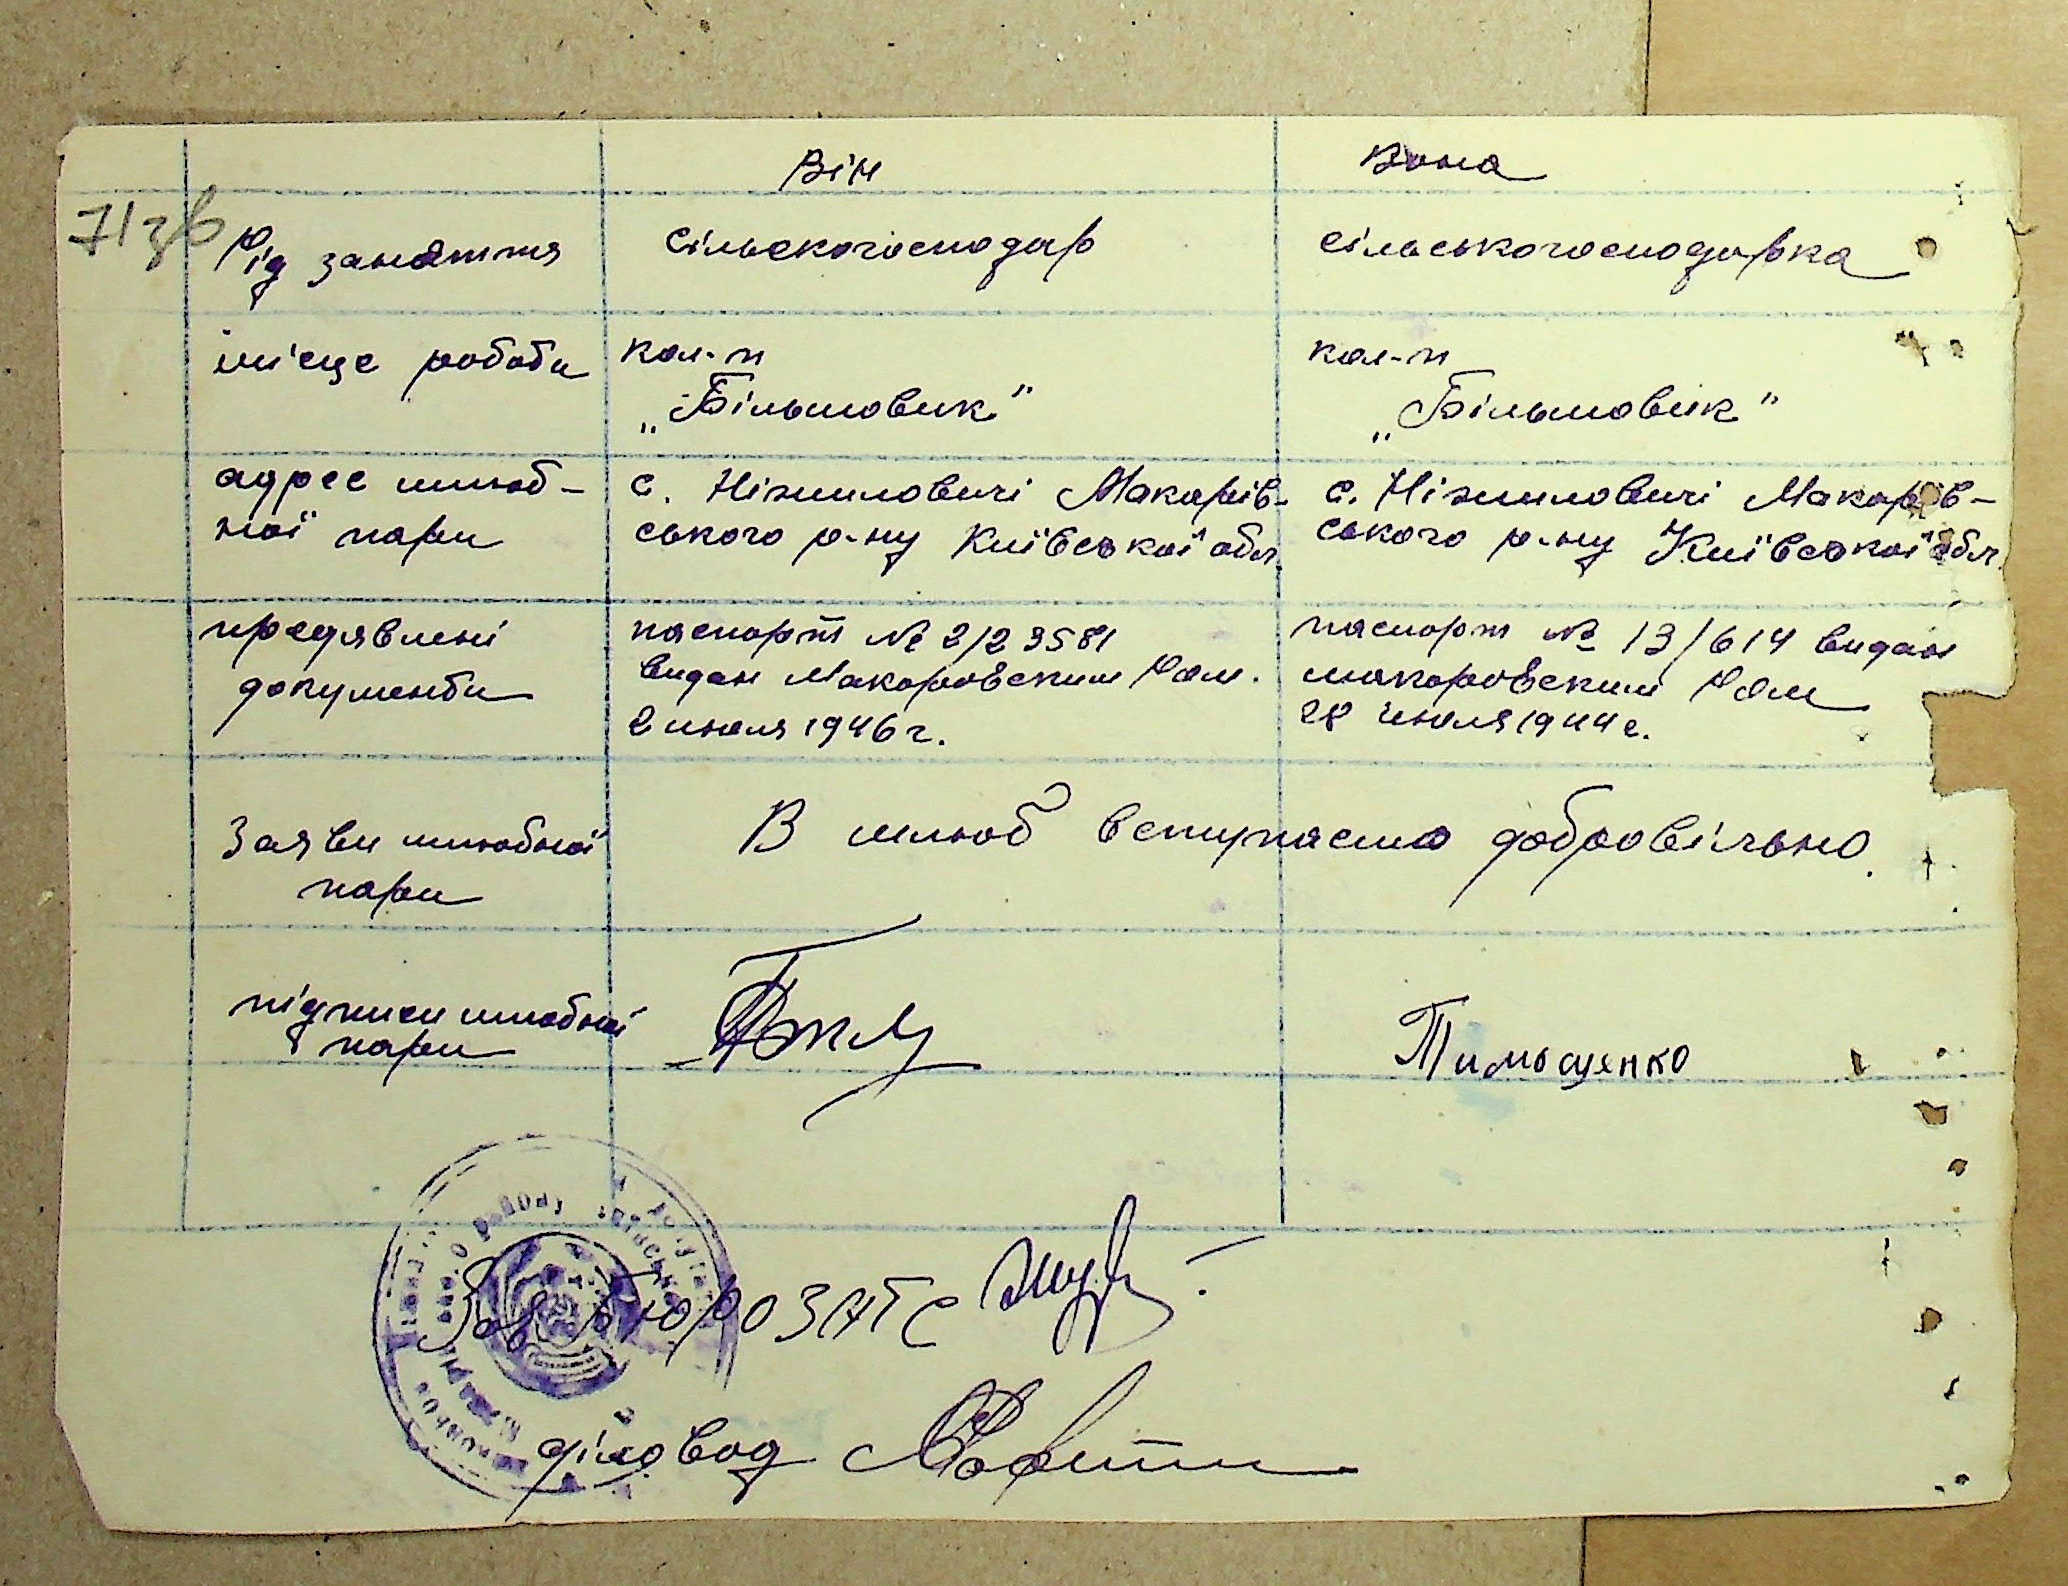 Він Вона
71зв
Рід заняття сільскогосподар сільськогосподарка
місце роботи кол-п кол-п
„Більшовик" „Більшовик"
адрес шлюб- с. Ніжиловичі Макарів- с. Ніжиловичі Макарів-
ної пари ського р-ну Київської обл. ського р-ну Київської обл.
предявлені паспорт № 2/23581 паспорт № 13/614 видан
документи видан Макаровским Ром. макаровским Ром
2 июля 1946 г. 28 июля 1944 г.
Заяви шлюбної В шлюб вступаємо добровільно.
пари
підписи шлюбної
пари Тимощенко
Зав бюро ЗАГС
діловод